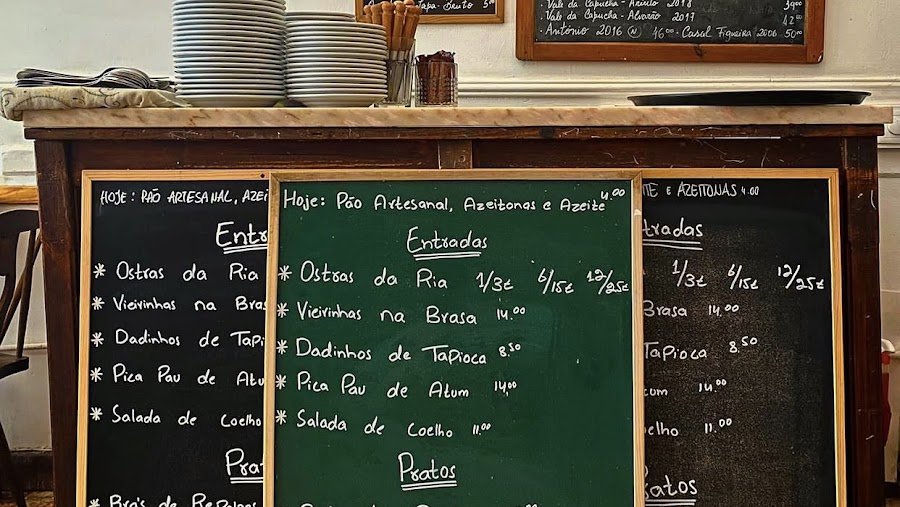 Tapa-Bruto 5
Vale da Capucha - Arinto 2018 39.00
Vale da Capucha - Alvarão 2017 42.00
António 2016 N 46.00 Casal Figueira 2006 50.00
HOJE: PÃO ARTESANAL, AZEI
Entr
* Ostras da Ria
* Vieirinhas na Bras
* Dadinhos de Tapi
* Pica Pau de Atu
* Salada de Coelho
Prat
Hoje: Pão Artesanal, Azeitonas e Azeite 4.00
Entradas
* Ostras da Ria 1/3€ 6/15€ 12/25€
* Vieirinhas na Brasa 14.00
* Dadinhos de Tapioca 8.50
* Pica Pau de Atum 14.00
* Salada de Coelho 11.00
Pratos
TE e AZEITONAS 4.00
tradas
1/3€ 6/15€ 12/25€
Brasa 14.00
Tapioca 8.50
tum 14.00
elho 11.00
atos